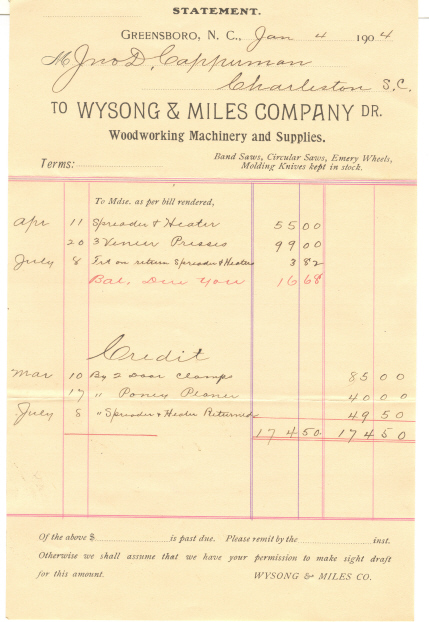 STATEMENT.
GREENSBORO, N. C., Jan 4 1904
M Jno D. Cappuman
Charleston S.C.
TO WYSONG & MILES COMPANY DR.
Woodworking Machinery and Supplies.
Terms: Band Saws, Circular Saws, Emery Wheels,
Molding Knives kept in stock.
To Mdse. as per bill rendered,
Apr 11 Spreader & Heater 55 00
20 3 Veneer Presses 99 00
July 8 Frt on return Spreader & Heater 3 82
Bal, Due You 16 68
Credit
Mar 10 By 2 Door Clamps 85 00
17 " Poney Planer 40 00
July 8 " Spreader & Heater Returned 49 50
174 50 174 50
Of the above $ is past due. Please remit by the inst.
Otherwise we shall assume that we have your permission to make sight draft
for this amount. WYSONG & MILES CO.